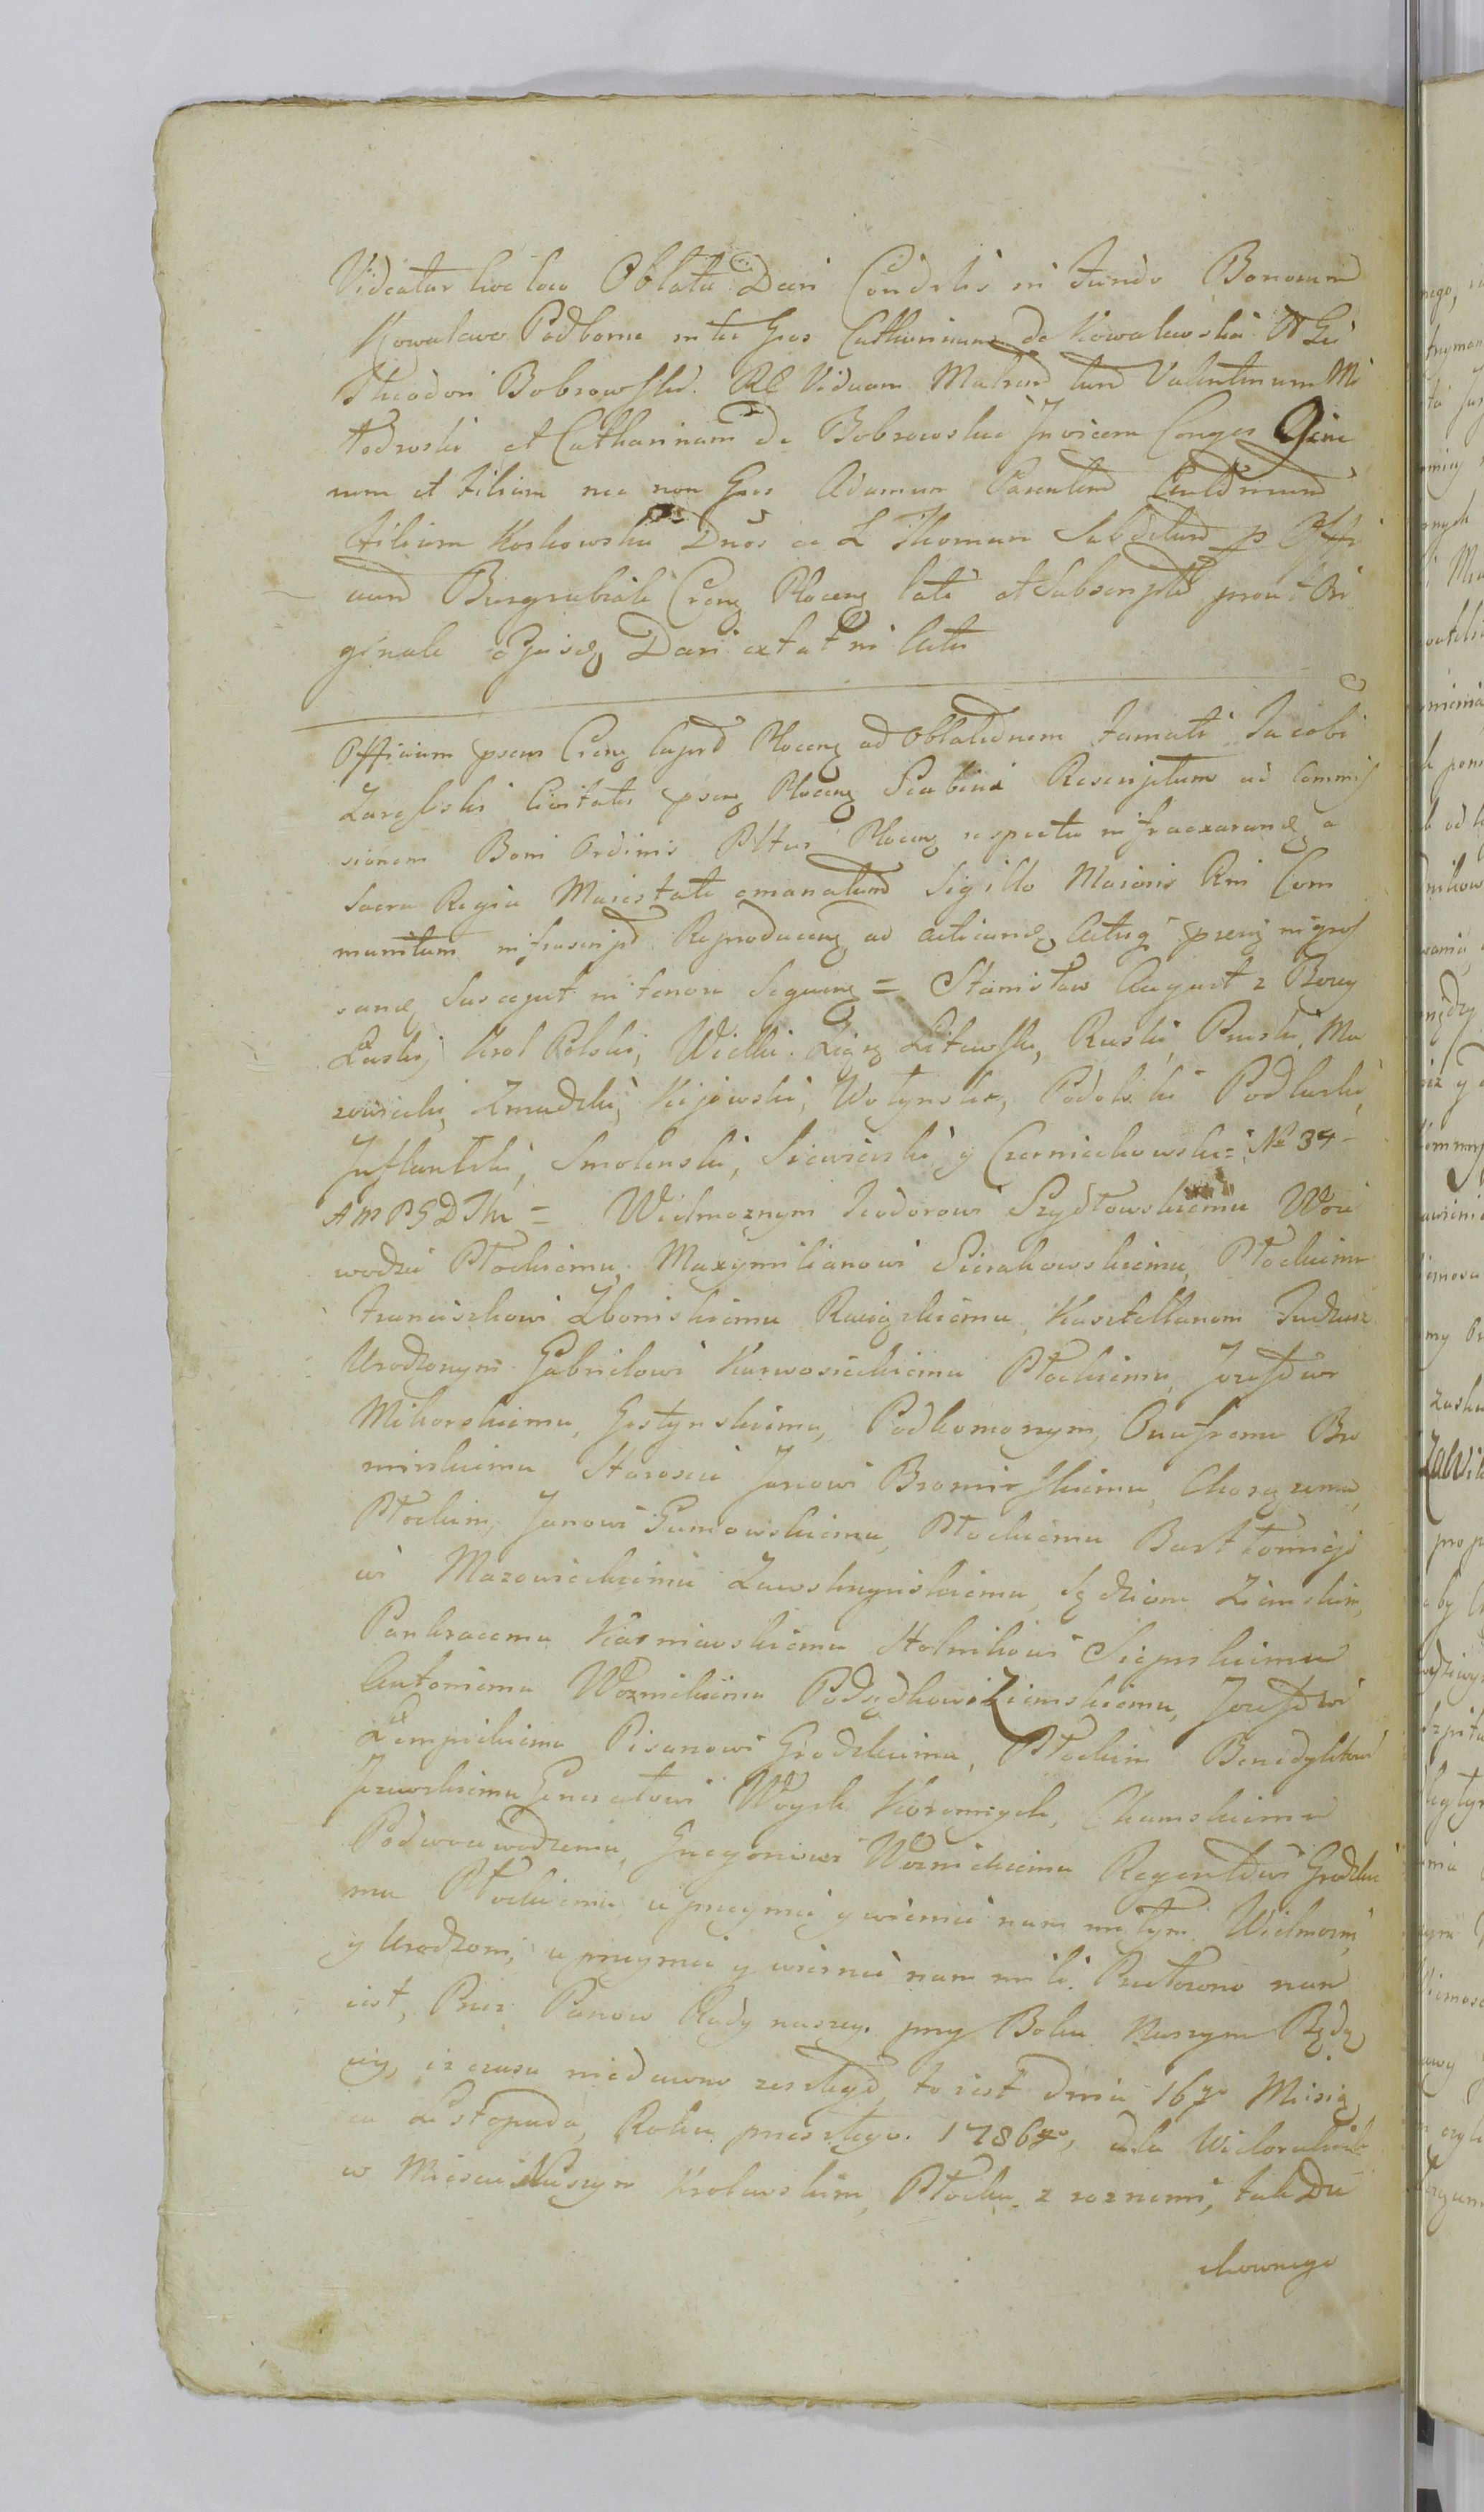 Videatur hoc loco Oblata Dcri Condrlis in Fundo Bonorum
Kowalewo Podborne inter Gsos Catharinam de Kowalewskie
Theodori Bobrowski Viduam Matrem tum Valentinum Mi
todroski et Catharinam de Bobrowskie Invicem Conges Gene
rum et Filiam nec non Gsos Adamum Parentem
Filium Koskowskie Dnos ac L Thomam Subditum p Offi
cium Burgrabiale Crens Plocens late et Subscripti prout Ori
ginale ejusdem Dcri extat in Actis
Officium psens Crens Capt Plocens ad Oblationem Famati Jacobi
Zareski Civitatis psens Plocens Scabini Rescriptum ad Commis
sionem Boni Ordinis Pltus Plocens respectu infraexarand a
Sacra Regia Maiestate emanatum Sigillo Maioris Rni Com
munitum infrascript Reproducens ad acticand Actisq psens ingros
sand Suscepit in tenore Sequens = Stanisław August z Bozey
Łaski Krol Polski, Wielki Xiąze Litewski, Ruski, Pruski, Ma
zowiecki, Zmudzki, Kijowski, Wołynski, Podolski Podlaski,
Inflantski, Smolenski, Siewierski y Czerniechowski = No 34
AMPGDThr = Wielmoznym Teodorowi Szydłowskiemu Woie
wodzie Płockiemu, Maxymilianowi Sierakowskiemu, Płockiemu
Franciszkowi Zboinskiemu Raciązkiemu, Kasztellanom Tudziesz
Urodzonym Gabrielowi Karwosieckiemu Płockiemu, Jozefowi
Mikorskiemu, Gostynskiemu, Podkomorzym, Onufremu Bro
mirskiemu Staroscie Janowi Bromirskiemu, Chorązemu,
Płockim, Janowi Gumowskiemu, Płockiemu Bartłomiejo
wi Mazowieckiemu Zawskrzynskiemu, Sędziom Ziemskim,
Pankracemu Kasniewskiemu Stolnikowi Sieprskiemu
Antoniemu Woznickiemu Podsędkowi Ziemskiemu, Jozefowi
Łempickiemu Pisarowi Grodzkiemu, Płockim Benedyktowi
Jezewskiemu Generałowi Woysk Koronnych, Chamskiemu
Podwoiewodzemu, Grzegorzowi Woznickiemu Regentowi Grodzkie
mu Płockiemu, uprzeymie y wiernie nam miłym Wielmozni,
y Urodzoni, uprzeymie y wiernie nam mili. Przełozono nam
iest, Przez Panow Rady naszey. przy Boku Naszym Będą
cych, iz czasu niedawno zeszłego, to iest dnia 16go Miesią
ca Listopada, Roku przeszłego. 1786go, dla Wielorakich
w Miescie Naszym Krolewskim, Płocku z roznemi, tak Du
chownego